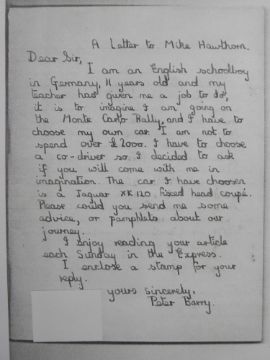 A Letter to Mike Hawthorn.
Dear Sir,
I am an English schoolboy
in Germany, 11 years old and my
teacher had given me a job to do,
it is to imagine I am going on
the Monte Carlo Rally, and I have to
choose my own car. I am not to
spend over £2000. I have to choose
a co-driver so I decided to ask
if you will come with me in
imagination. The car I have choosen
is a Jaguar XK 120. fixed head coupé.
Please could you send me some
advice, or pamphlets about our
journey.
I enjoy reading your article
each Sunday in the Express.
I enclose a stamp for your
reply.
yours sincerely,
Peter Barry.